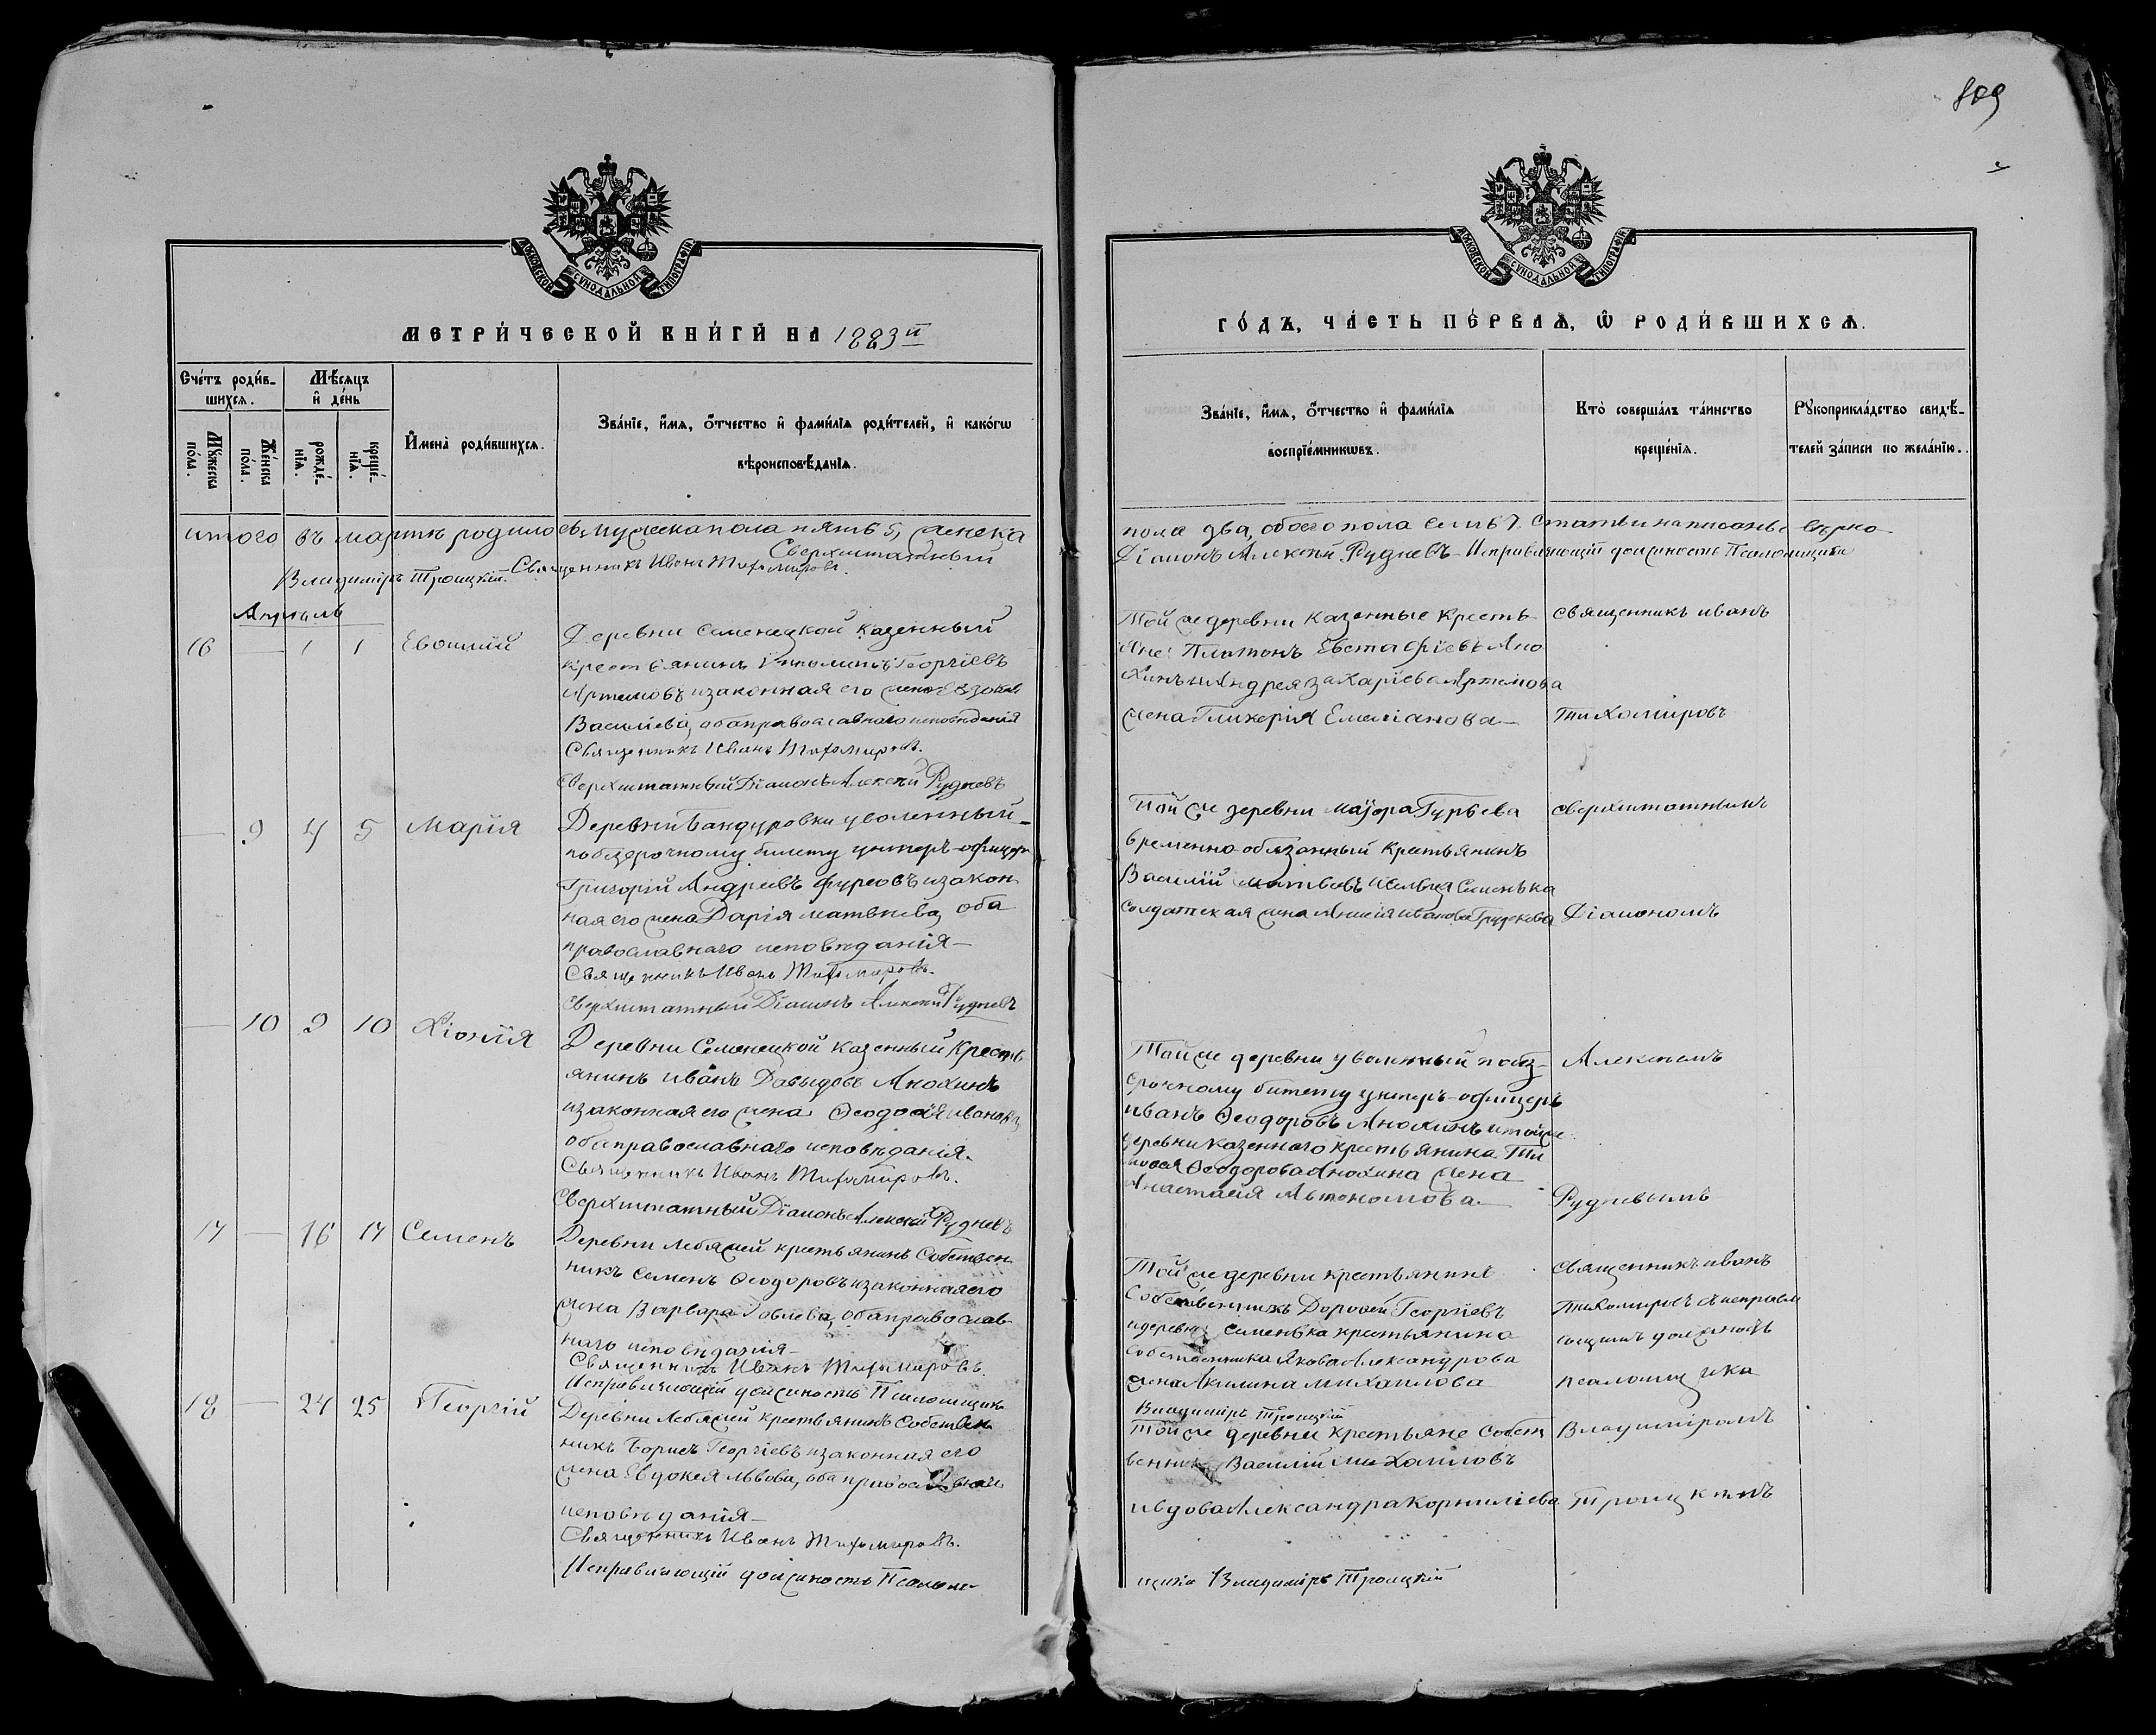 809
МОСКОВСКОЙ СѴНОДАЛЬНОЙ ТИПОГРАФІИ
МЕТРИ́ЧЕСКОЙ КНИ́ГИ НА 1883й
Сче́тъ роди́в-
шихсѧ.
Мѣ́сѧцъ
и҆ де́нь
Мꙋ́жеска
по́ла.
Же́нска
по́ла.
рожде́-
нїѧ.
креще́-
нїѧ.
И҆мена̀ роди́вшихсѧ.
Зва́нїе, и҆́мѧ, ѻ҆́тчество и҆ фами́лїѧ роди́телей, и҆ како́гѡ
вѣроисповѣ́данїѧ.
итого въ мартѣ родилось, мужеска пола пять 5, женска
Сверхштатный
Владиміръ Троицкій. Священникъ Иванъ Тихомировъ.
Апрель
16 — 1 1 Евѳимій
Деревни Семенецкой казенный
крестьянинъ Ипполитъ Георгіевъ
Артемовъ и законная его жена
Василіева, оба православнаго исповѣданія
Священникъ Иванъ Тихомировъ.
Сверхштатный Діаконъ Алексѣй Рудневъ
— 9 4 5 Марія
Деревни Бандуровки уволенный
по безсрочному билету унтеръ-офицеръ
Григорій Андреевъ Фурсовъ и закон
ная его жена Дарія Матвѣева, оба
православнаго исповѣданія—
Священникъ Иванъ Тихомировъ.
Сверхштатный Діаконъ Алексѣй Рудневъ
— 10 9 10 Хіонія
Деревни Семенецкой казенный кресть
янинъ Иванъ Давыдовъ Анохинъ
и законная его жена Ѳеодосія Иванова,
оба православнаго исповѣданія.
Священникъ Иванъ Тихомировъ.
Сверхштатный Діаконъ Алексѣй Рудневъ
17 — 16 17 Семенъ
Деревни Лебяжей крестьянинъ Собствен
никъ Семенъ Ѳеодоровъ и законная его
жена Варвара Іовлева, оба православ
наго исповѣданія—
Священникъ Иванъ Тихомировъ.
Исправляющій должность Псаломщика
18 — 24 25 Георгій
Деревни Лебяжей крестьянинъ Собствен
никъ Борисъ Георгіевъ и законная его
жена Евдокея Львова, оба православнаго
исповѣданія—
Священникъ Иванъ Тихомировъ.
Исправляющій должность Псалом-
МОСКОВСКОЙ СѴНОДАЛЬНОЙ ТИПОГРАФІИ
ГО́ДЪ, ЧА́СТЬ ПЕ́РВАѦ, Ѽ РОДИ́ВШИХСѦ.
Зва́нїе, и҆́мѧ, ѻ҆́тчество и҆ фами́лїѧ
воспрїе́мникѡвъ.
Кто̀ соверша́лъ та́инство
креще́нїѧ.
Рꙋкоприкла́дство свидѣ́-
телей за́писи по жела́нїю.
пола два, обоего пола семь 7. Статьи написаны вѣрно
Діаконъ Алексѣй Рудневъ. Исправляющій должность Псаломщика
Той же деревни казенные кресть
яне: Платонъ Евстафіевъ Ано
хинъ и Андрея Захаріева Артемова
жена Гликерія Емеліанова—
Священникъ Иванъ
Тихомировъ
Той же деревни маіора Гурьева
временно-обязанный крестьянинъ
Василій Матвѣевъ и сельца Семенька
солдатская жена Анисія Иванова
сверхштатнымъ
Діакономъ
Той же деревни уволенный по без-
срочному билету унтеръ-офицеръ
Иванъ Ѳеодоровъ Анохинъ и той же
деревни казеннаго крестьянина Ти
моѳея Ѳеодорова Анохина жена
Анастасія Автономова—
Алексѣемъ
Рудневымъ
Той же деревни крестьянинъ
Собственникъ Дороѳей Георгіевъ
и деревни Семенька крестьянина
Собственника Якова Александрова
жена Акилина Михаилова
Владиміръ Троицкій
Священникъ Иванъ
Тихомировъ съ исправля
ющимъ должность
псаломщика
Той же деревни крестьяне Собст
венникъ Василій Михаиловъ
и вдова Александра Корниліева
Владиміромъ
Троицкимъ
щика Владиміръ Троицкій